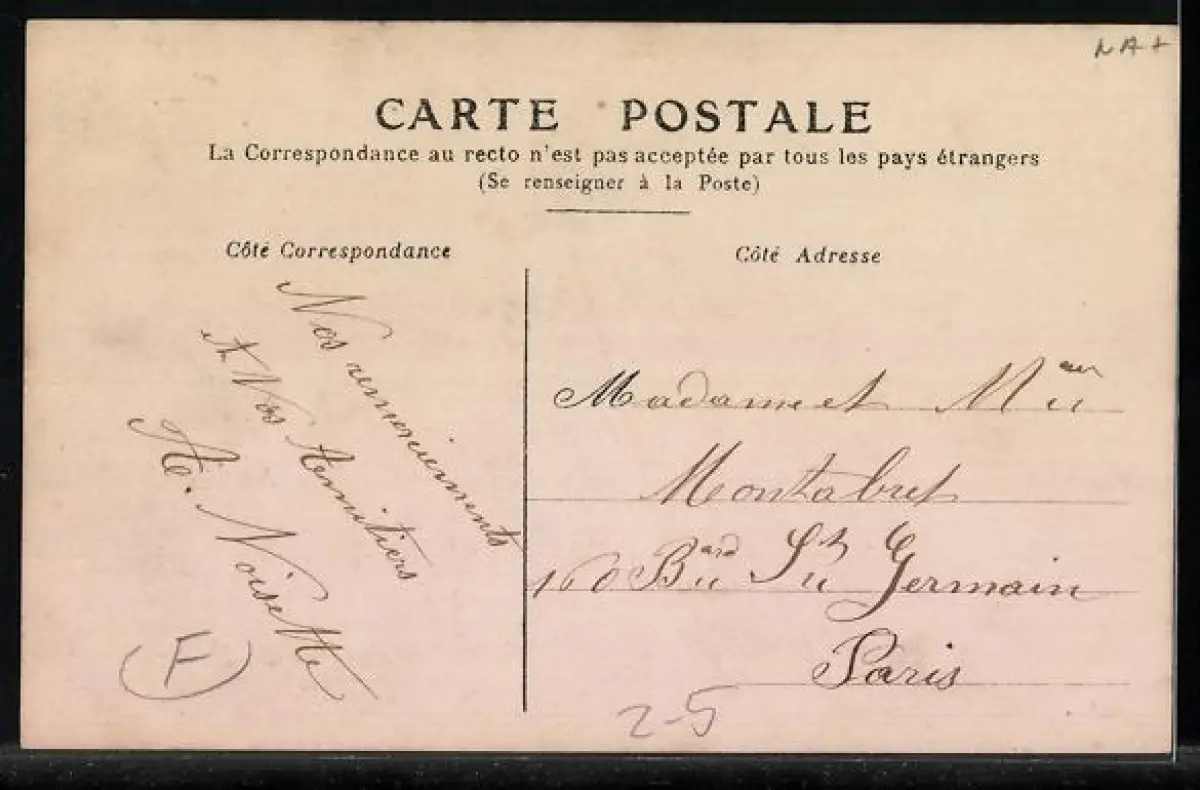 NA+
CARTE POSTALE
La Correspondance au recto n'est pas acceptée par tous les pays étrangers
(Se renseigner à la Poste)
Côté Correspondance
Nos remerciements
et Vos Amitiers
A. Noisette
F
Côté Adresse
Madame et Mieur
Montabret
160 Bard St Germain
Paris
2-5